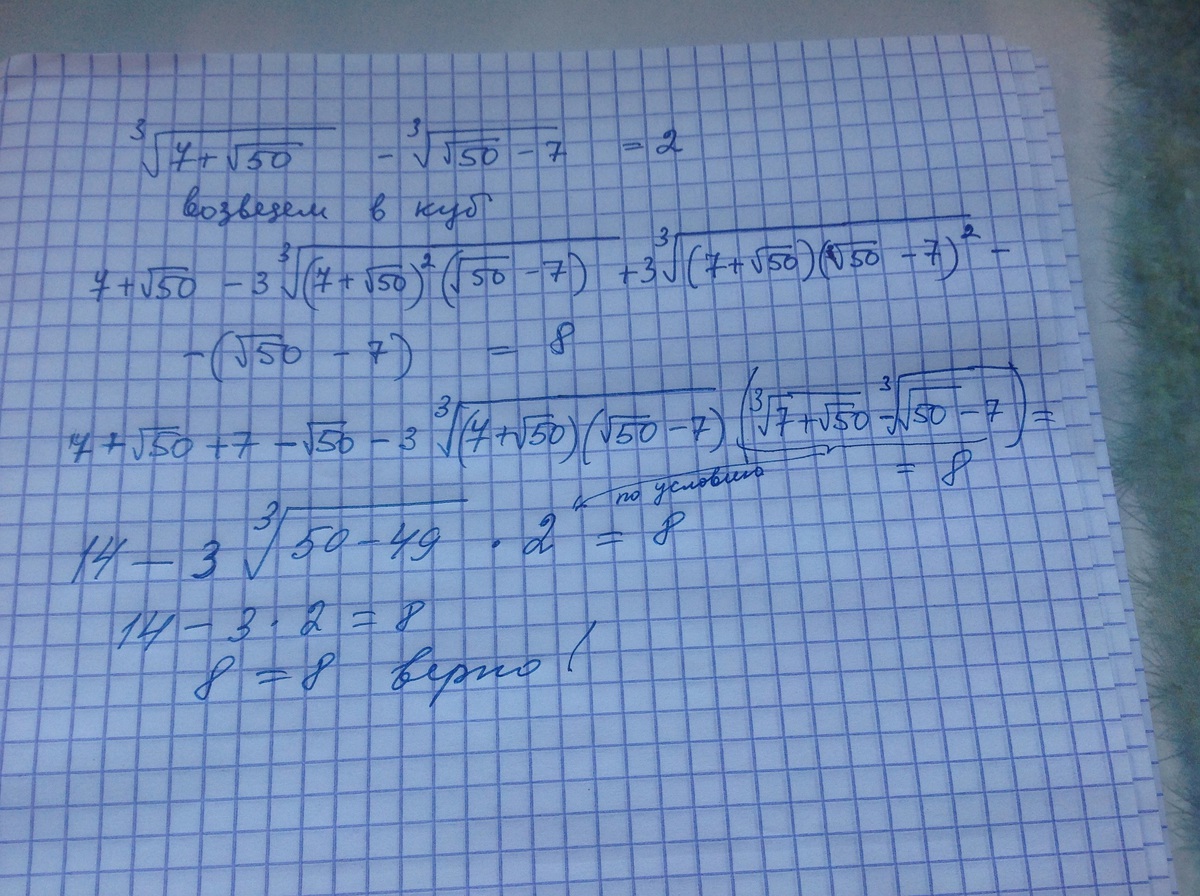 ∛(7+√50) - ∛(√50 - 7) = 2
возведем в куб
7+√50 - 3∛((7+√50)²(√50 - 7)) + 3∛((7+√50)(√50 - 7)²) -
-(√50 - 7) = 8
7+√50+7-√50-3∛((7+√50)(√50-7)) (∛(7+√50) - ∛(√50 - 7)) =
= 8
по условию
14 - 3∛(50-49) · 2 = 8
14 - 3·2 = 8
8 = 8 верно !